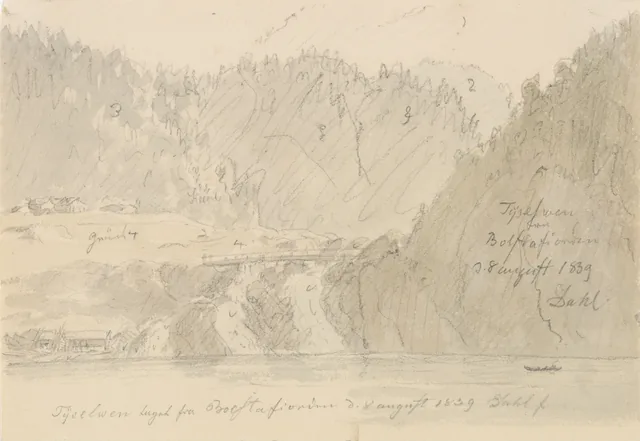 3
2
8
8
5
grünt 4
4
Tÿselwen
fra
Bolstafiorden
d. 8 august 1839
Dahl
Tÿselwen taget fra Bolstafiorden d. 8 august 1839 Dahl f